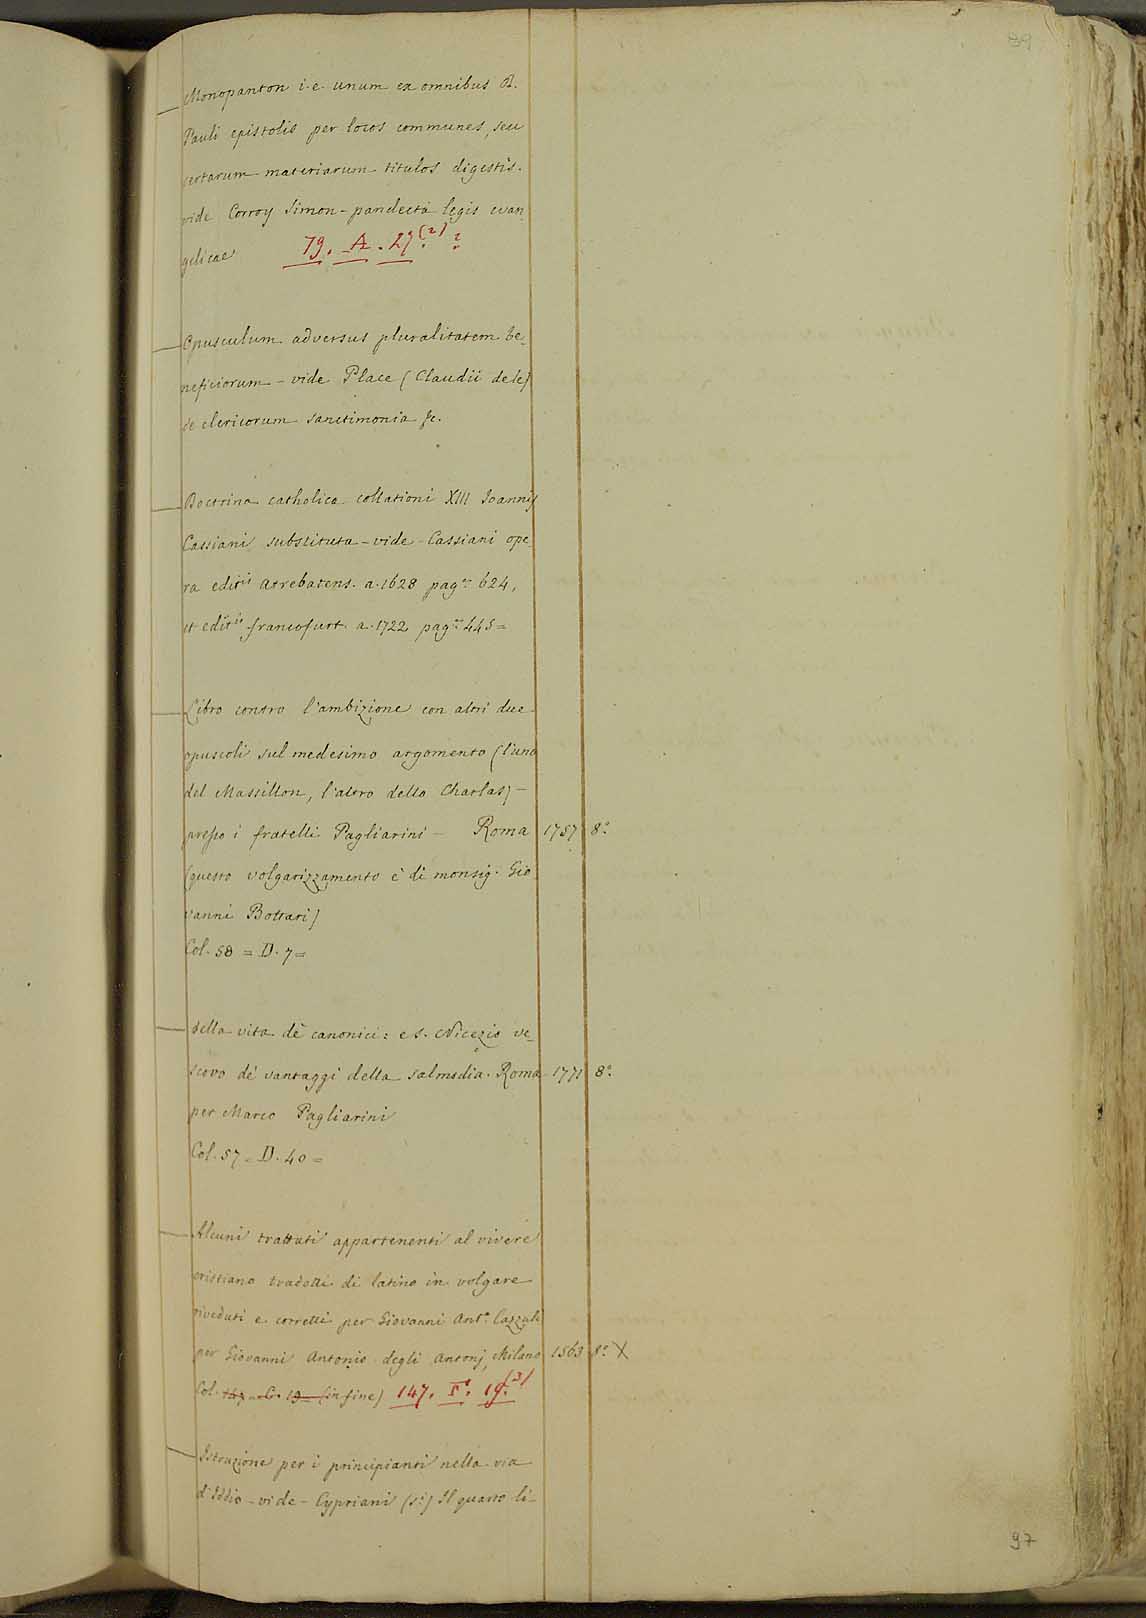 89
Monopanton i.e. unum ex omnibus D.
Pauli epistolis per locos communes, seu
certarum materiarum titulos digestis.
vide Corroy Simon - pandecta legis evan
gelicae 79. A. 27.(2)?
Opusculum adversus pluralitatem be_
neficiorum - vide Place (Claudii de le)
de clericorum sanctimonia &c.
Doctrina catholica collationi XIII Joannis
Cassiani substituta - vide - Cassiani ope_
ra editis Atrebatens. a. 1628 pag. 624,
et editis francofurt. a. 1722 pag. 445 =
Libro contro l'ambizione con altri due
opuscoli sul medesimo argomento (l'uno
del Massillon, l'altro dello Charlas) -
presso i fratelli Pagliarini - Roma 1757 8°
(questo volgarizzamento è di monsig. Gio
vanni Bottari)
Col. 58 = D. 7 =
della vita de' canonici: e s. Nicezio ve_
scovo de' vantaggi della salmodia. Roma 1771 8°.
per Marco Pagliarini
Col. 57 = D. 40 =
Alcuni trattati appartenenti al vivere
cristiano tradotti di latino in volgare
riveduti e corretti per Giovanni Ant.° Cazzuli
per Giovanni Antonio degli Antonj, Milano 1563 8° X
Col. 147 = C. 19 = (in fine) 147. F. 19.(3)
Istruzione per i principianti nella via
d'Iddio - vide - Cypriani (s.) Il quarto li_
97